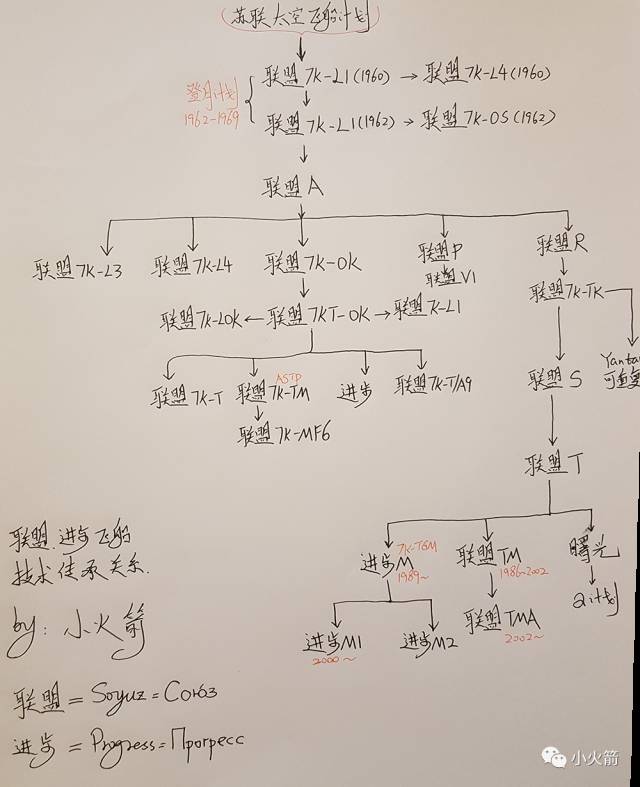 苏联太空飞船计划
登月计划
1962-1969
联盟 7K-L1(1960) → 联盟 7K-L4(1960)
联盟 7K-L1(1962) → 联盟 7K-OS(1962)
联盟 A
联盟 7K-L3
联盟 7K-L4
联盟 7K-OK
联盟 P
联盟 R
联盟 VI
联盟 7K-TK
联盟 7K-LOK ← 联盟 7KT-OK → 联盟 7K-L1
Yantar
可重复
联盟 7K-T
ASTP
联盟 7K-TM
进步
联盟 7K-T/A9
联盟 S
联盟 7K-MF6
联盟 T
联盟.进步飞船
技术传承关系.
by: 小火箭
7K-TGM
进步M
1989~
联盟 TM
1986~2002
曙光
进步M1
2000~
进步M2
联盟 TMA
2002~
a计划
联盟 = Soyuz = Союз
进步 = Progress = Прогресс
小火箭